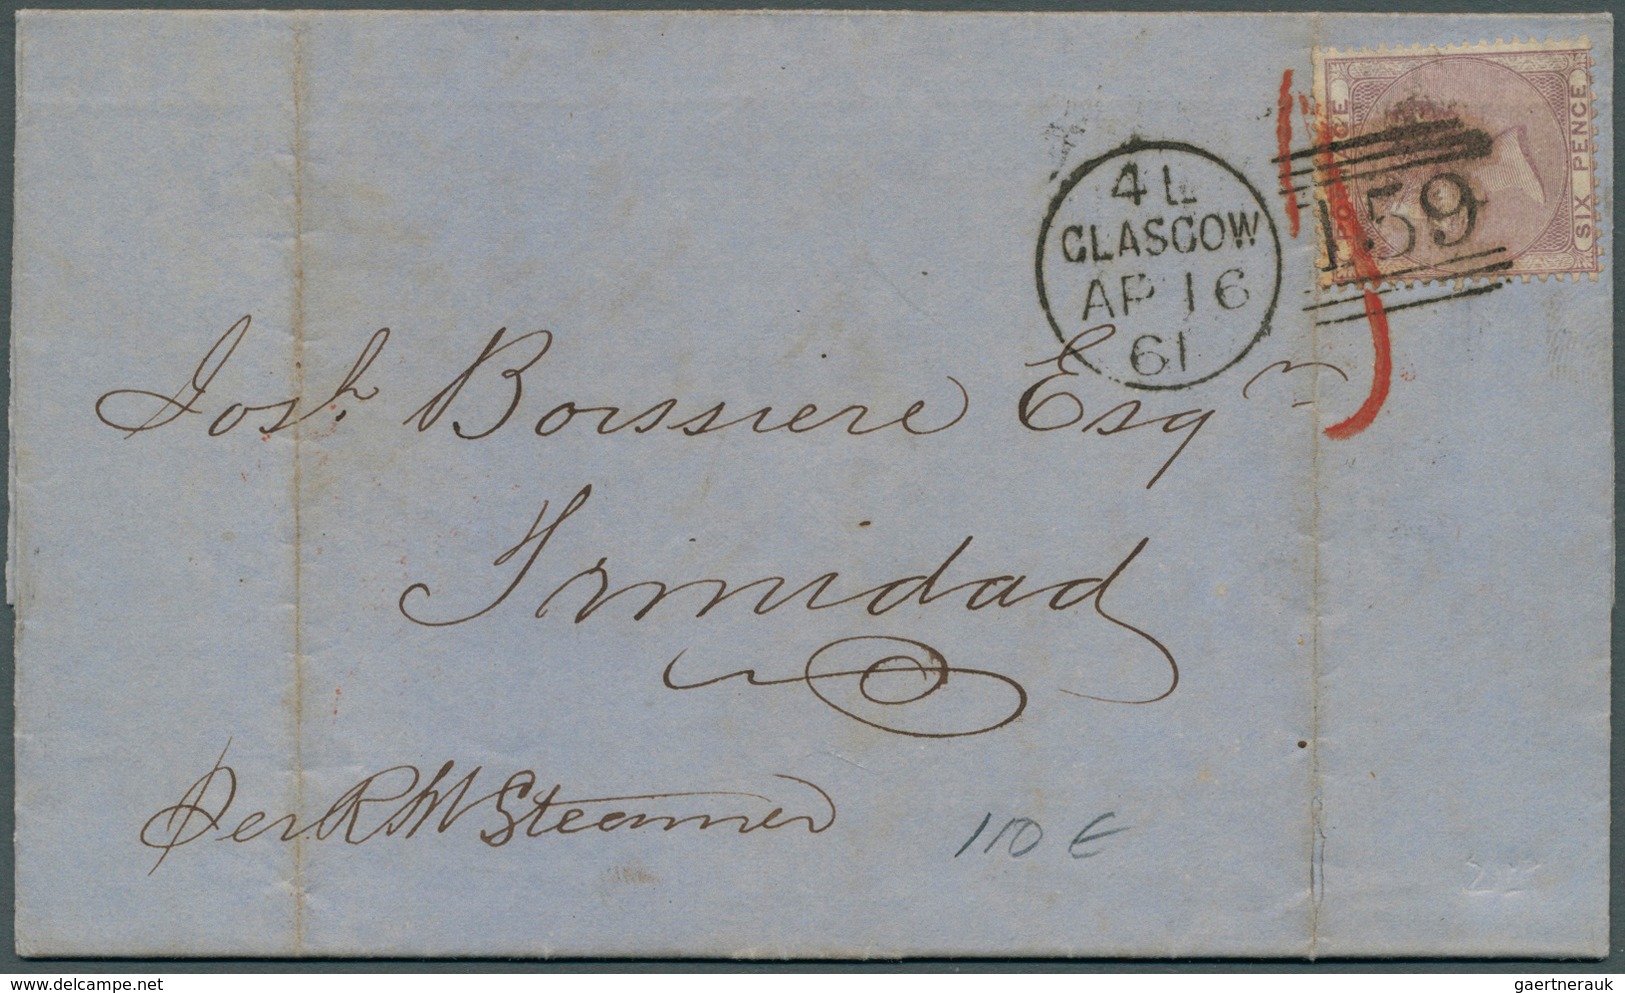 SIX PENCE
159
4 L
GLASGOW
AP 16
61
Josh. Boissiere Esqr
Trinidad
Per R M Steamer
110 €
delcampe.net
gaertnerauk